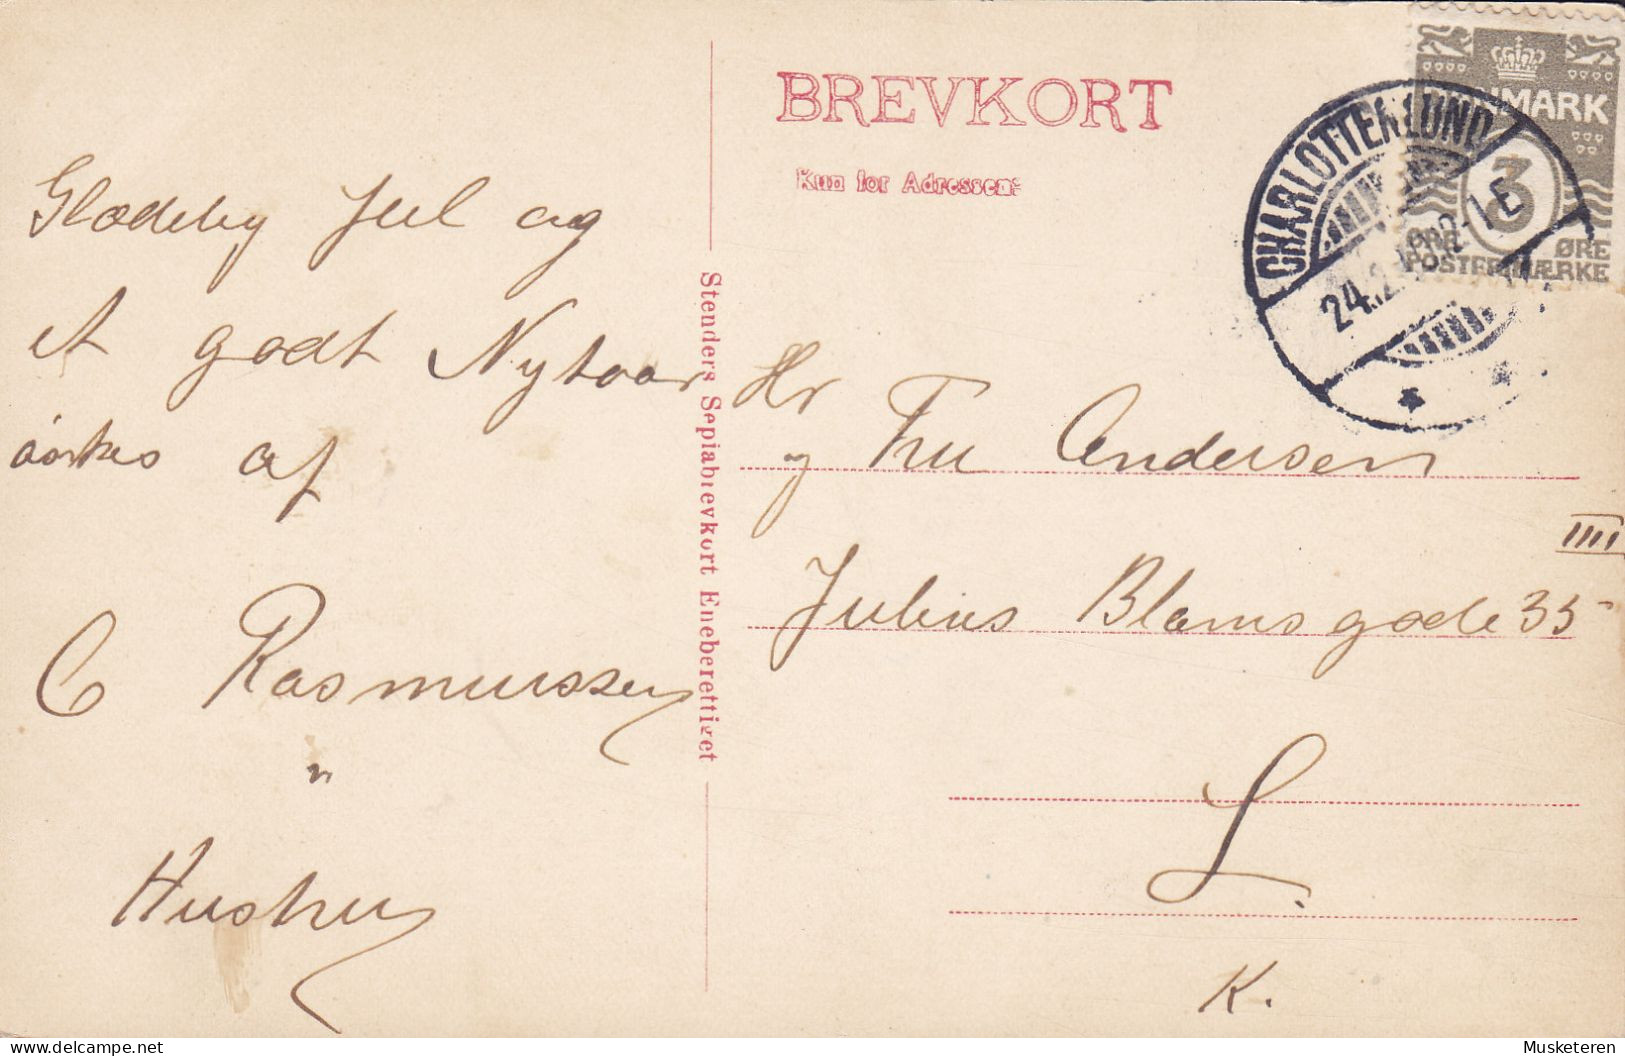 BREVKORT
Kun for Adressen:
DANMARK
3
ØRE ØRE
POSTFRIMÆRKE
CHARLOTTENLUND
24.12. 2-1 E
Glædelig Jul og
et godt Nytaar
ønskes af
C Rasmussen
"
Hustru
Stenders Sepiabrevkort Eneberettiget
Hr
og Fru Andersen
Julius Blomsgade 35
IIII
L.
K.
Musketeren